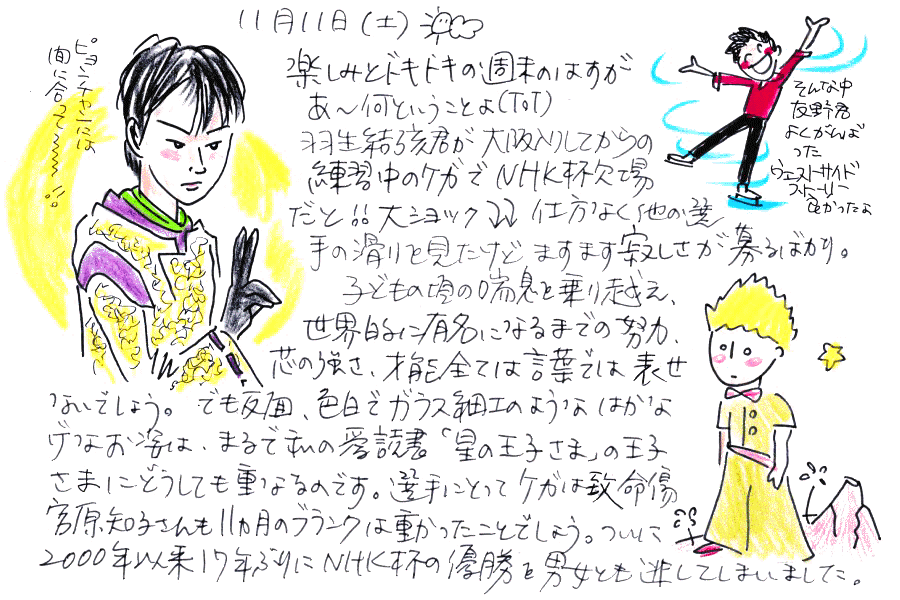 11月11日(土)
ピョンチャンには
間に合って〜〜〜!!
楽しみとドキドキの週末のはずが
あ〜何ということよ(ToT)
羽生結弦君が大阪入りしてからの
練習中のケガでNHK杯欠場
だと!!大ショック↓↓仕方なく他の選
手の滑りを見たけどますます寂しさが募るばかり。
子どもの頃の喘息を乗り越え、
世界的に有名になるまでの努力、
芯の強さ、才能全ては言葉では表せ
ないでしょう。でも反面、色白でガラス細工のようなはかな
げなお姿は、まるで私の愛読書「星の王子さま」の王子
さまにどうしても重なるのです。選手にとってケガは致命傷
宮原知子さんも11ヵ月のブランクは重かったことでしょう。ついに
2000年以来17年ぶりにNHK杯の優勝を男女とも逃してしまいました。
そんな中
友野君
よくがんば
った
ウェストサイド
ストーリー
良かったよ